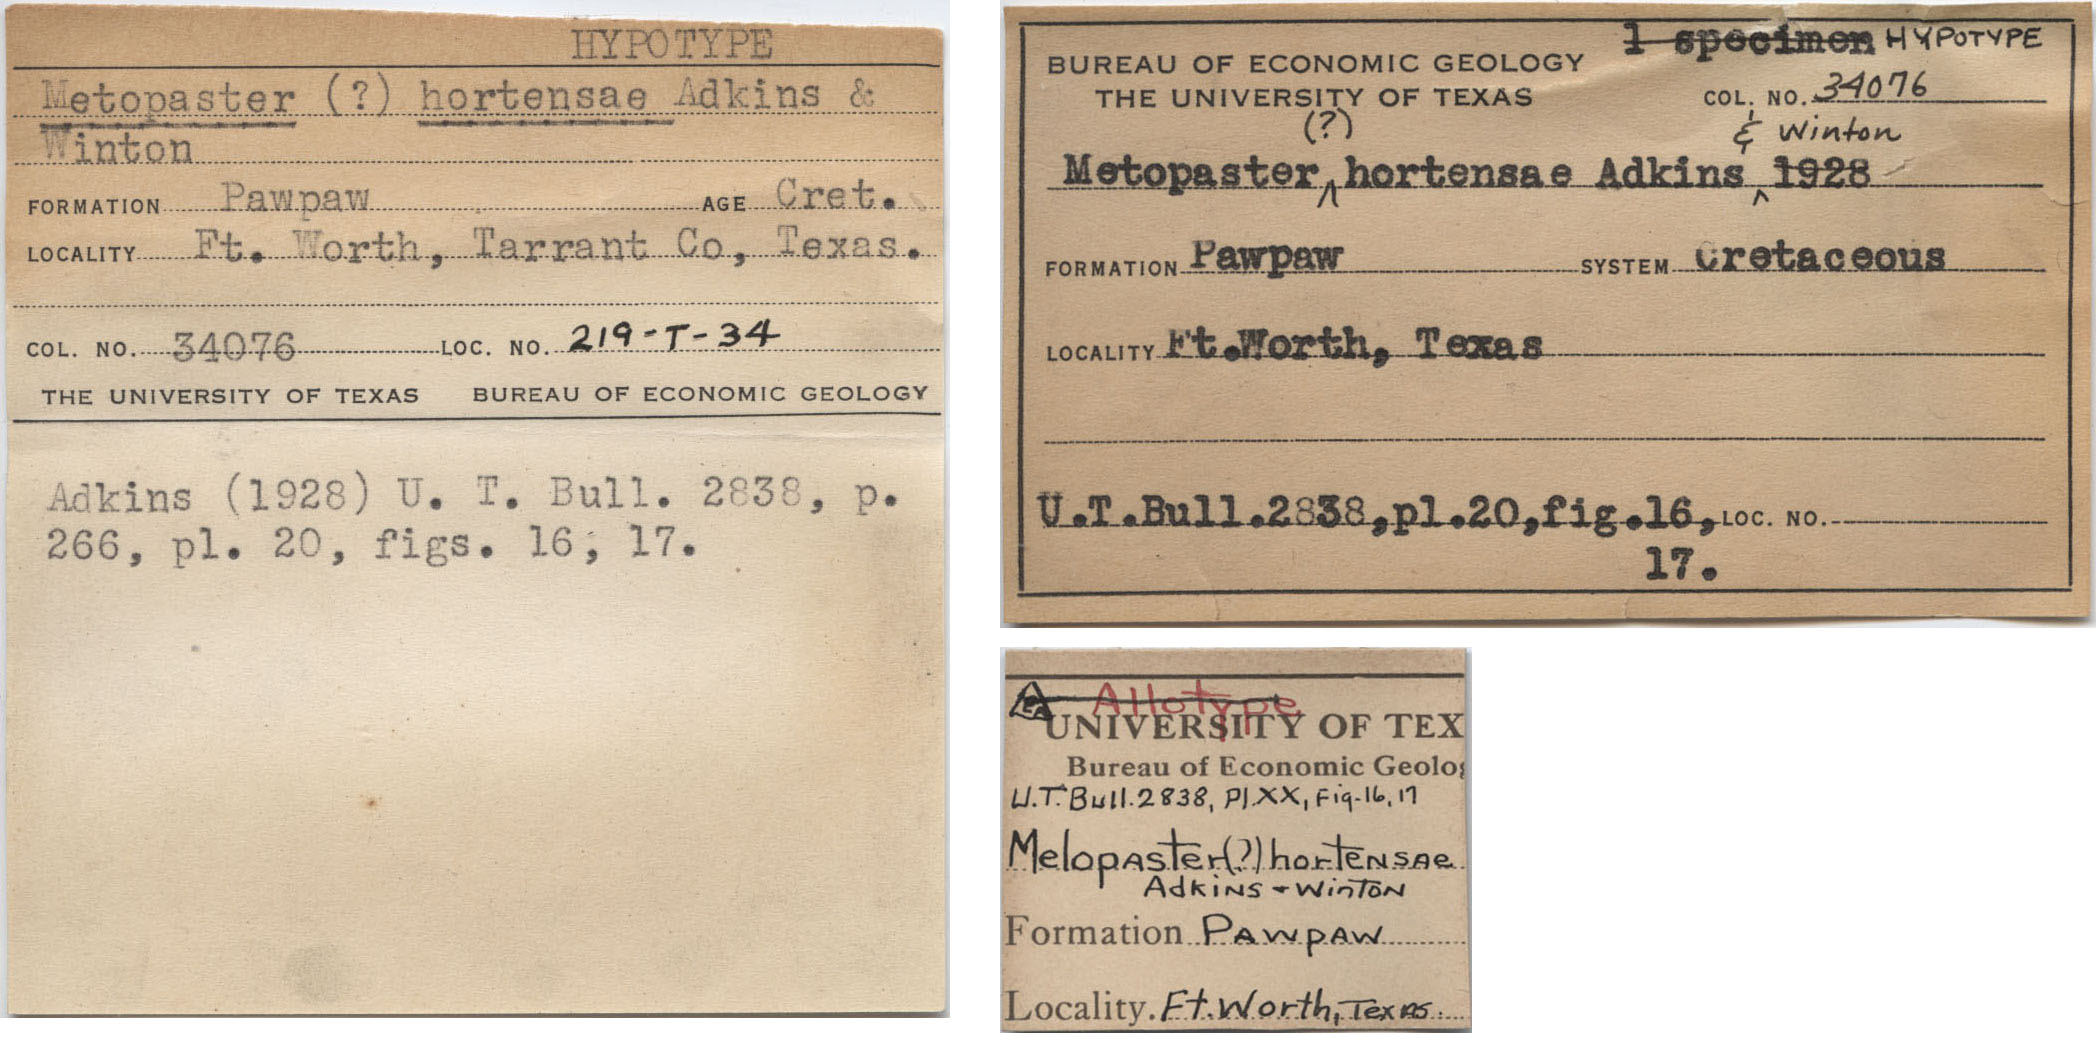 HYPOTYPE
Metopaster (?) hortensae Adkins &
Winton
FORMATION Pawpaw AGE Cret.
LOCALITY Ft. Worth, Tarrant Co, Texas.
COL. NO. 34076 LOC. NO. 219-T-34
THE UNIVERSITY OF TEXAS BUREAU OF ECONOMIC GEOLOGY
Adkins (1928) U. T. Bull. 2838, p.
266, pl. 20, figs. 16, 17.
1 specimen HYPOTYPE
BUREAU OF ECONOMIC GEOLOGY
THE UNIVERSITY OF TEXAS COL. NO. 34076
(?) & Winton
Metopaster hortensae Adkins 1928
FORMATION Pawpaw SYSTEM Cretaceous
LOCALITY Ft.Worth, Texas
U.T.Bull.2838,pl.20,fig.16, LOC. NO.
17.
Allotype
UNIVERSITY OF TEX
Bureau of Economic Geolog
U.T. Bull. 2838, Pl. XX, Fig. 16, 17
Melopaster (?) hortensae
Adkins + Winton
Formation Pawpaw
Locality. Ft. Worth, Texas